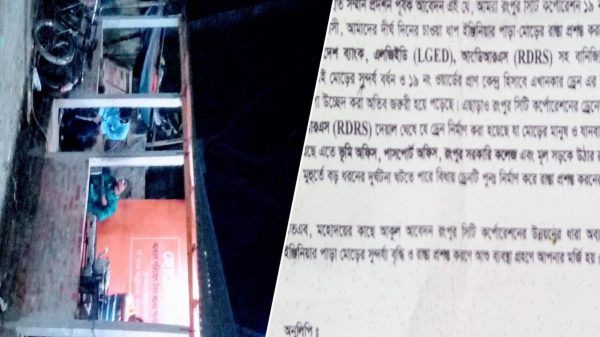 সম্মান প্রদর্শন পূর্বক আবেদন এই যে, আমরা রংপুর সিটি কর্পোরেশন ১৯ ন
সী, আমাদের দীর্ঘ দিনের চাওয়া ধাপ ইঞ্জিনিয়ার পাড়া মোড়ের রাস্তা প্রশস্ত কর
দেশ ব্যাংক, এলজিইডি (LGED), আরডিআরএস (RDRS) সহ বানিজি
মোড়ের সুন্দর্য বর্ধন ও ১৯ নং ওয়ার্ডের প্রাণ কেন্দ্র হিসাবে এখানকার ড্রেন এর
উচ্ছেদ করা অতিব জরুরী হয়ে পড়েছে। এছাড়াও রংপুর সিটি কর্পোরেশনের ড্রেনে
আরএস (RDRS) দেয়াল ঘেষে যে ড্রেন নির্মাণ করা হয়েছে যা মোড়ের মানুষ ও যানবা
ছে এতে ভূমি অফিস, পাসপোর্ট অফিস, রংপুর সরকারি কলেজ এবং মূল সড়কে উঠার
মুহুর্তে বড় ধরনের দুর্ঘটনা ঘটতে পারে বিধায় ড্রেনটি পুনঃ নির্মাণ করে রাস্তা প্রশস্ত করনের
তএব, মহোদয়ের কাছে আকুল আবেদন রংপুর সিটি কর্পোরেশনের উন্নয়নের ধারা অব্যা
ইঞ্জিনিয়ার পাড়া মোড়ের সুন্দর্য বৃদ্ধি ও রাস্তা প্রশস্ত করণে আশু ব্যবস্থা গ্রহণে আপনার মর্জি হয়
অনুলিপি :